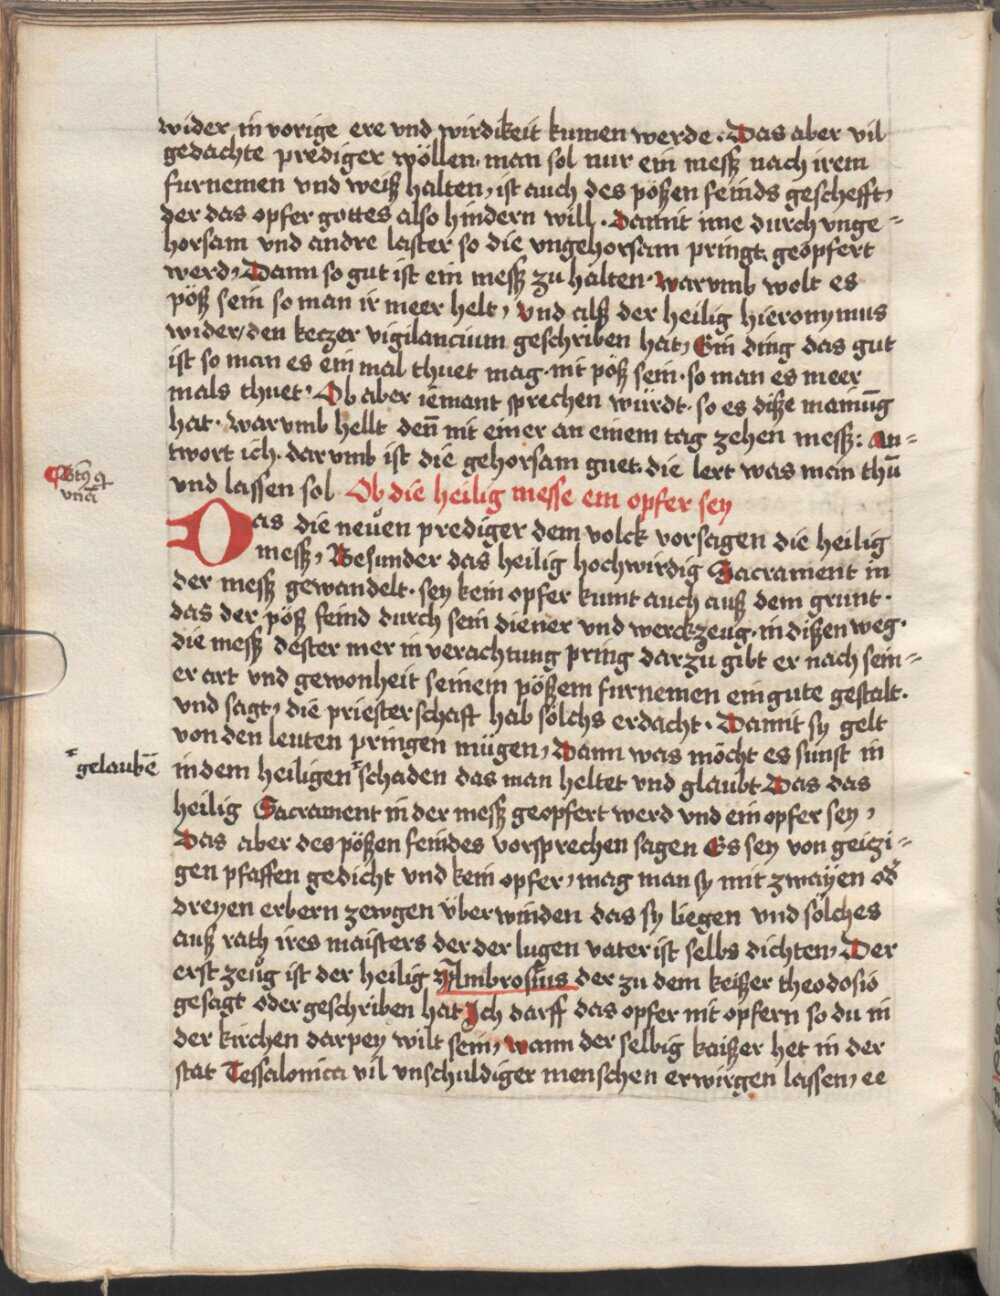 wider in vorige ere vnd wirdikeit kumen werde. Das aber vil
gedachte prediger wöllen, man sol nur ein mesß nach irem
furnemen vnd weiß halten, ist auch des pößen feinds geschefft,
der das opfer gottes also hindern will. Damit ime durch vnge=
horsam vnd andre laster so die vngehorsam pringt geopfert
werd, Dann so gut ist ein mesß zu halten. warvmb wolt es
pöß sein so man ir meer helt, vnd alß der heilig hieronymus
wider den keczer vigilancium geschriben hat, Ein ding das gut
ist so man es ein mal thuet mag nit pöß sein. so man es meer
mals thuet. Ob aber iemant sprechen würdt. so es diße mainūg
hat. warvmb hellt den̄ nit einer an einem tag zehen mesß: an=
twort ich. darvmb ist die gehorsam guet. die lert was man thū
und lassen sol Ob die heilig messe ein opfer sey
Das die neuen prediger dem volck vorsagen die heilig
mesß, Besunder das heilig hochwirdig Sacrament in
der mesß gewandelt. sey kein opfer kumt auch auß dem grunt.
das der pöß feind durch sein diener vnd werckzeug. in dißen weg.
die mesß dester mer in verachtung pring dar zu gibt er nach sein=
er art vnd gewonheit seinem pößem furnemen ein gute gestalt.
vnd sagt, die priesterschaft hab sölchs erdacht. Damit sy gelt
von den leuten pringen mügen, Dann was möcht es sunst in
gelaubē in dem heiligen schaden das man heltet vnd glaubt Das das
heilig Sacrament in der mesß geopfert werd vnd ein opfer sey,
Das aber des pößen feindes vorsprechen sagen Es sey von geizi=
gen pfaffen gedicht vnd kein opfer, mag man sy mit zwayen od̄
dreyen erbern zewgen überwinden das sy liegen vnd sölches
auß rath ires maisters der der lugen vater ist selbs dichten, Der
erst zeug ist der heilig Ambrosius der zu dem keißer theodosio
gesagt oder geschriben hat Ich darff das opfer nit opfern so du in
der kirchen darpey wilt sein, wann der selbig kaißer het in der
stat Tessalonica vil vnschuldiger menschen erwirgen lassen, ee